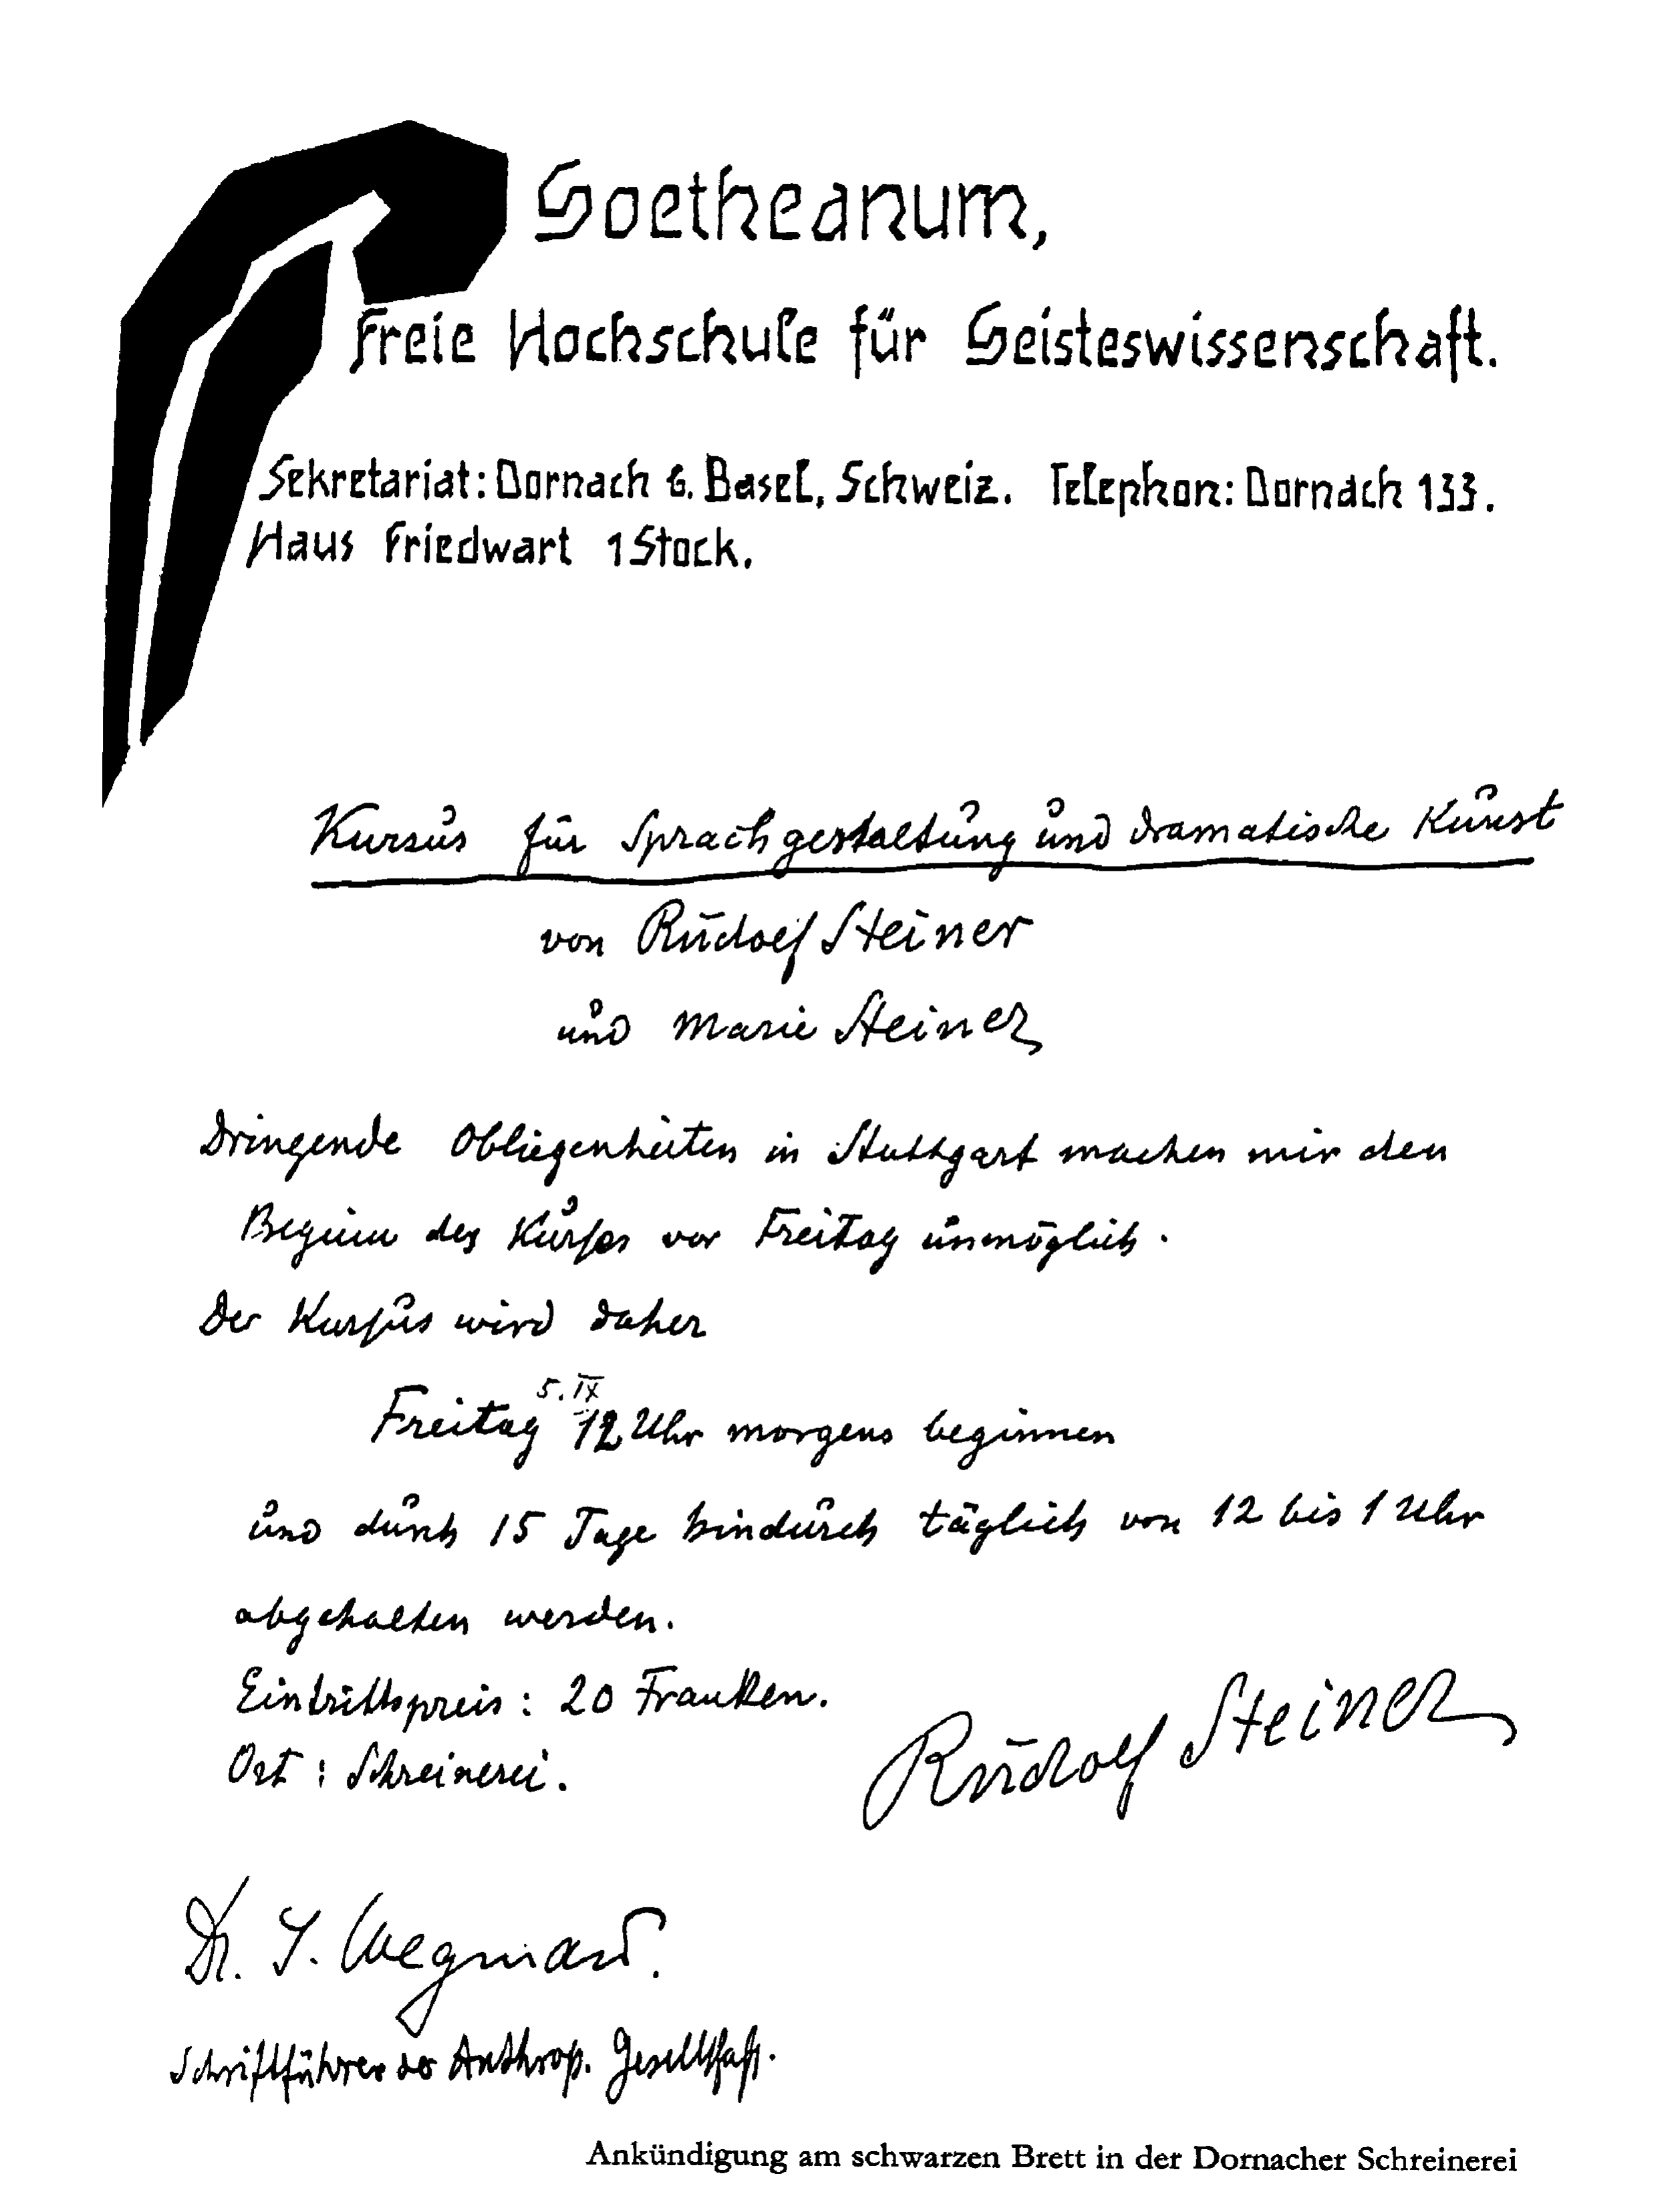 Goetheanum,
Freie Hochschule für Geisteswissenschaft.
Sekretariat: Dornach b. Basel, Schweiz. Telephon: Dornach 133.
Haus Friedwart 1 Stock.
Kursus für Sprachgestaltung und dramatische Kunst
von Rudolf Steiner
und Marie Steiner
Dringende Obliegenheiten in Stuttgart machen mir den
Beginn des Kurses vor Freitag unmöglich.
Der Kursus wird daher
5. IX
Freitag 12 Uhr morgens beginnen
und durch 15 Tage hindurch täglich von 12 bis 1 Uhr
abgehalten werden.
Eintrittspreis: 20 Franken.
Ort: Schreinerei.
Rudolf Steiner
Dr. I. Wegman.
Schriftführer der Anthrop. Gesellschaft.
Ankündigung am schwarzen Brett in der Dornacher Schreinerei